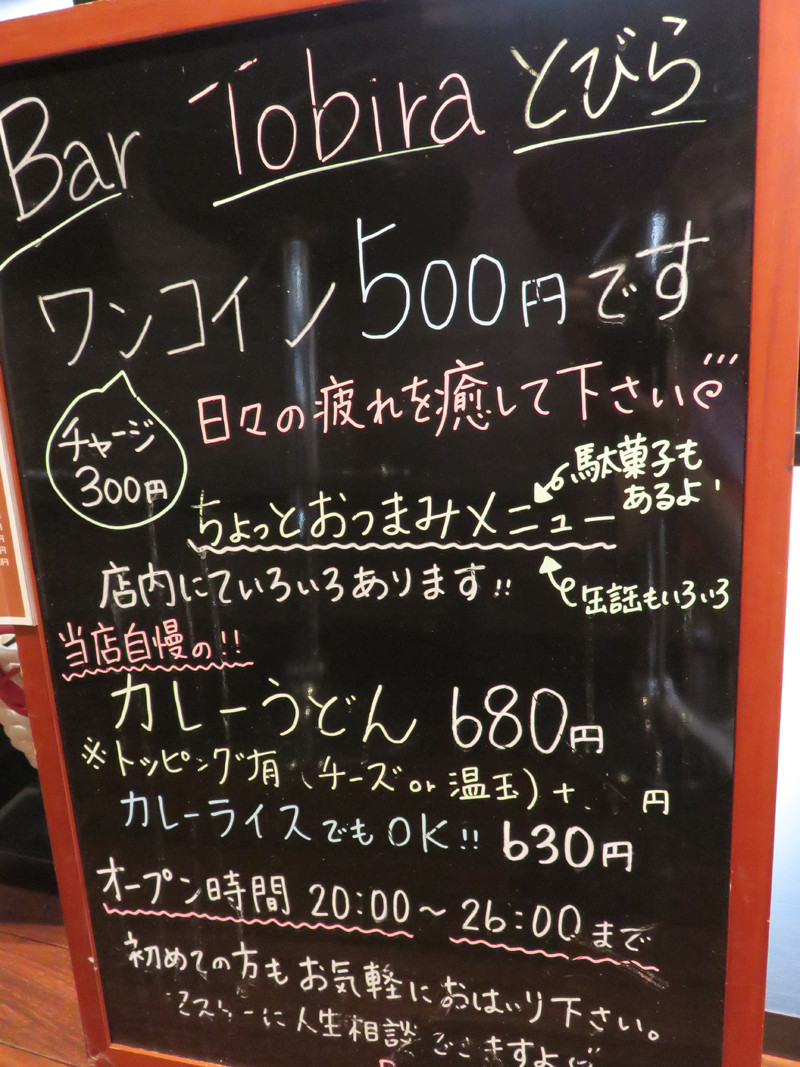 Bar Tobira とびら
ワンコイン 500円です
チャージ
300円
日々の疲れを癒して下さい
駄菓子も
あるよ!
ちょっとおつまみメニュー
店内にていろいろあります!!
缶詰もいろいろ
当店自慢の!!
カレーうどん 680円
※トッピング有(チーズor温玉)+ 円
カレーライスでもOK!! 630円
オープン時間 20:00〜26:00まで
初めての方もお気軽におはいり下さい。
マスターに人生相談できますよ